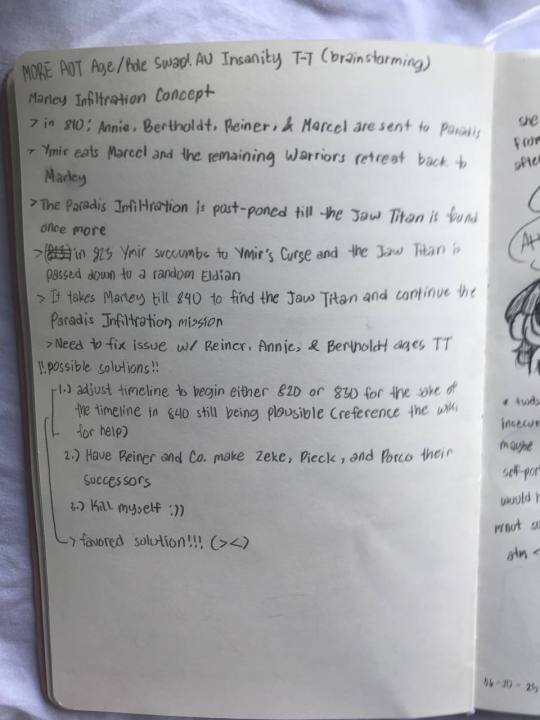 MORE AOT Age/Role Swap AU Insanity T-T (brainstorming)
Marley Infiltration Concept
> in 810; Annie, Bertholdt, Reiner, & Marcel are sent to Paradis
- Ymir eats Marcel and the remaining Warriors retreat back to
Marley
> The Paradis Infiltration is post-poned till the Jaw Titan is found
once more
> in 825 Ymir succumbs to Ymir's Curse and the Jaw Titan is
passed down to a random Eldian
> It takes Marley till 840 to find the Jaw Titan and continue the
Paradis Infiltration mission
> Need to fix issue w/ Reiner, Annie, & Bertholdt ages TT
!!possible solutions!!
1.) adjust timeline to begin either 820 or 830 for the sake of
the timeline in 840 still being plausible (reference the wiki
for help)
2.) Have Reiner and Co. make Zeke, Pieck, and Porco their
successors
3.) Kill myself :))
> favored solution!!! (><)
she
from
after
insecur
maybe
self-por
would h
atm <